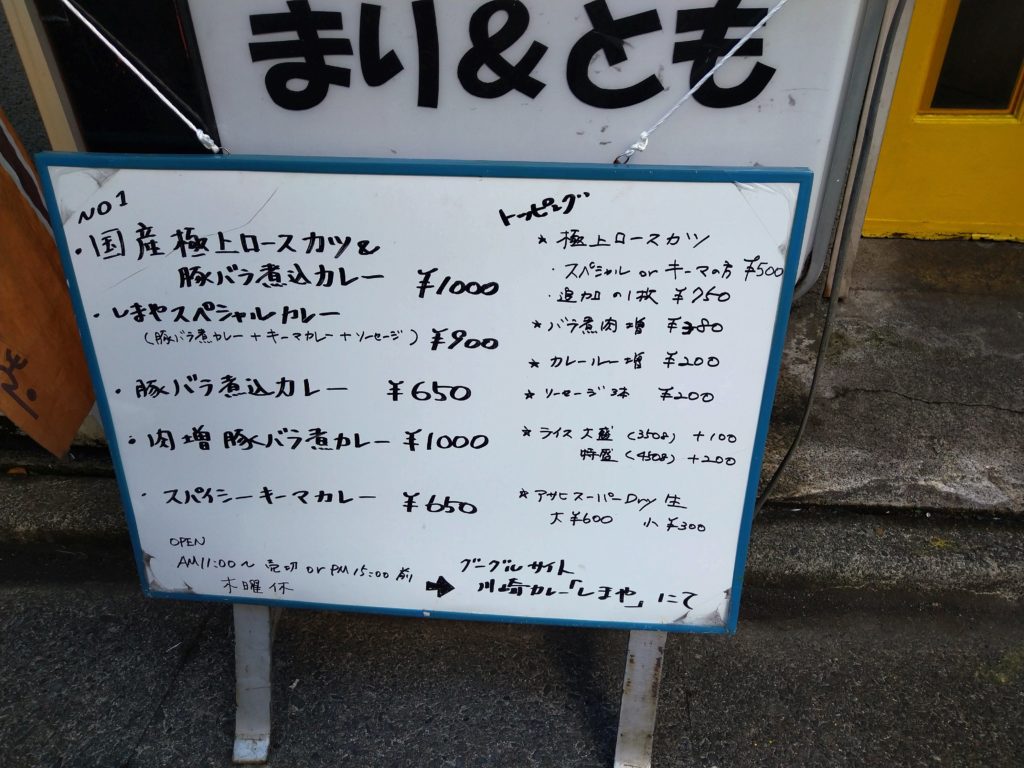 まり&とも
NO1
・国産極上ロースカツ&
豚バラ煮込カレー ¥1000
・しまやスペシャルカレー
(豚バラ煮カレー+キーマカレー+ソーセージ) ¥900
・豚バラ煮込カレー ¥650
・肉増豚バラ煮カレー ¥1000
・スパイシーキーマカレー ¥650
OPEN
AM11:00~売切 or PM15:00前
木曜休
トッピング
★極上ロースカツ
・スペシャル or キーマの方 ¥500
・追加の1枚 ¥750
★バラ煮肉増 ¥380
★カレールー増 ¥200
★ソーセージ3本 ¥200
★ライス大盛(350g) +100
特盛(450g) +200
★アサヒスーパーDry生
大¥600 小¥300
グーグルサイト
➡川崎カレー「しまや」にて